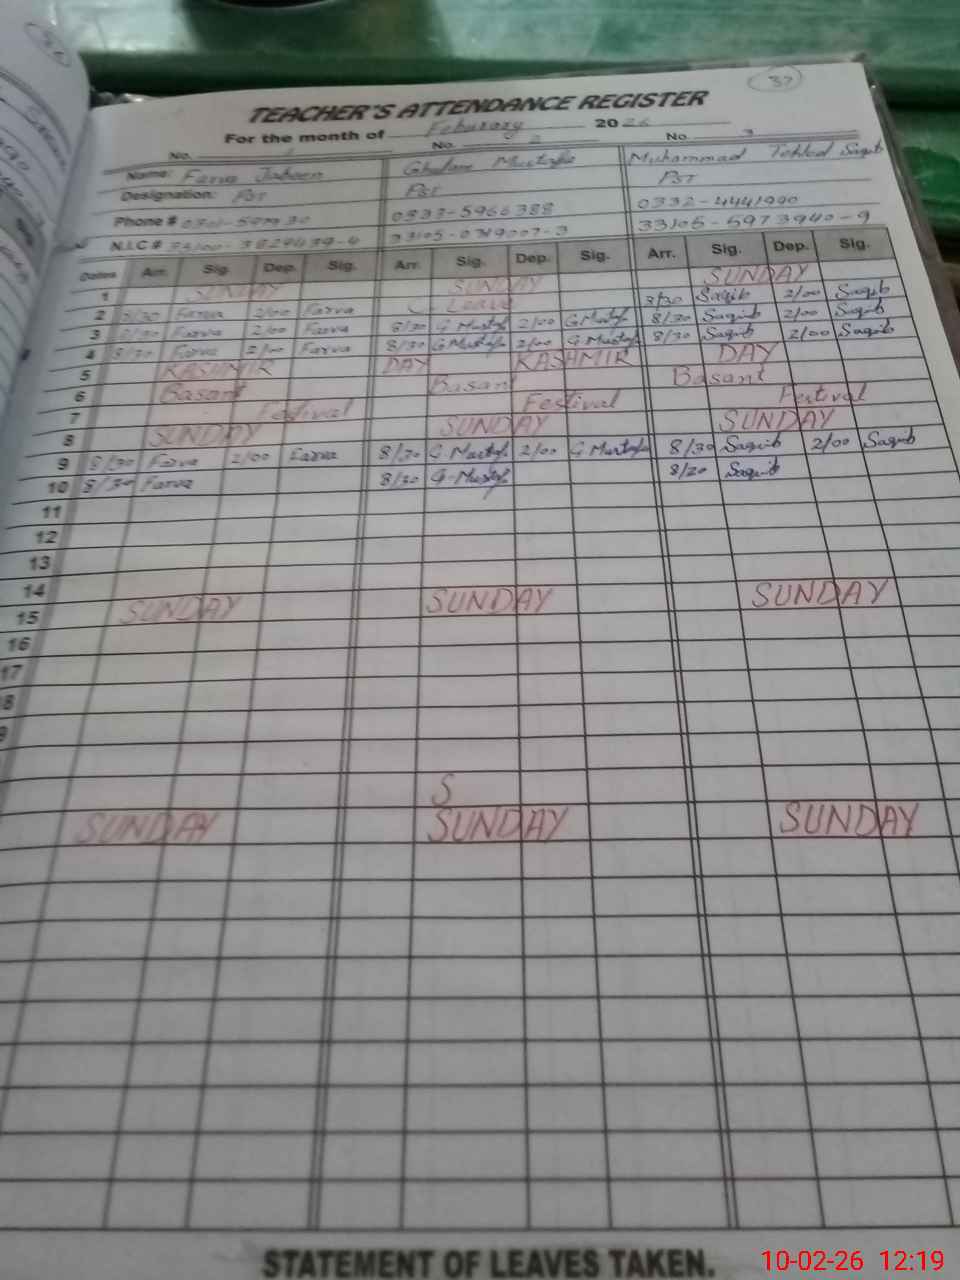 37
TEACHER'S ATTENDANCE REGISTER
For the month of Feburary 2026
No. No. 2 No. 3
Name: Farva Jabeen Ghulam Mustafa Muhammad Saqib
Designation: PST PST PST
Phone # 0333-5966388 0332-4441990
N.I.C # 33105-0719007-3 33105-5973940-9
Dates Arr. Sig. Dep. Sig. Arr. Sig. Dep. Sig. Arr. Sig. Dep. Sig.
1 SUNDAY SUNDAY SUNDAY
2 8/30 Farva 2/00 Farva C. Leave 8/30 Saqib 2/00 Saqib
3 8/30 Farva 2/00 Farva 8/30 G Mustafa 2/00 G Mustafa 8/30 Saqib 2/00 Saqib
4 8/30 Farva 2/00 Farva 8/30 G Mustafa 2/00 G Mustafa 8/30 Saqib 2/00 Saqib
5 KASHMIR DAY KASHMIR DAY
6 Basant Basant Basant
7 Festival Festival Festival
8 SUNDAY SUNDAY SUNDAY
9 8/30 Farva 2/00 Farva 8/30 G Mustafa 2/00 G Mustafa 8/30 Saqib 2/00 Saqib
10 8/30 Farva 8/30 G-Mustafa 8/20 Saqib
11
12
13
14
15 SUNDAY SUNDAY SUNDAY
16
17
8
9
S
SUNDAY SUNDAY SUNDAY
STATEMENT OF LEAVES TAKEN.
10-02-26 12:19